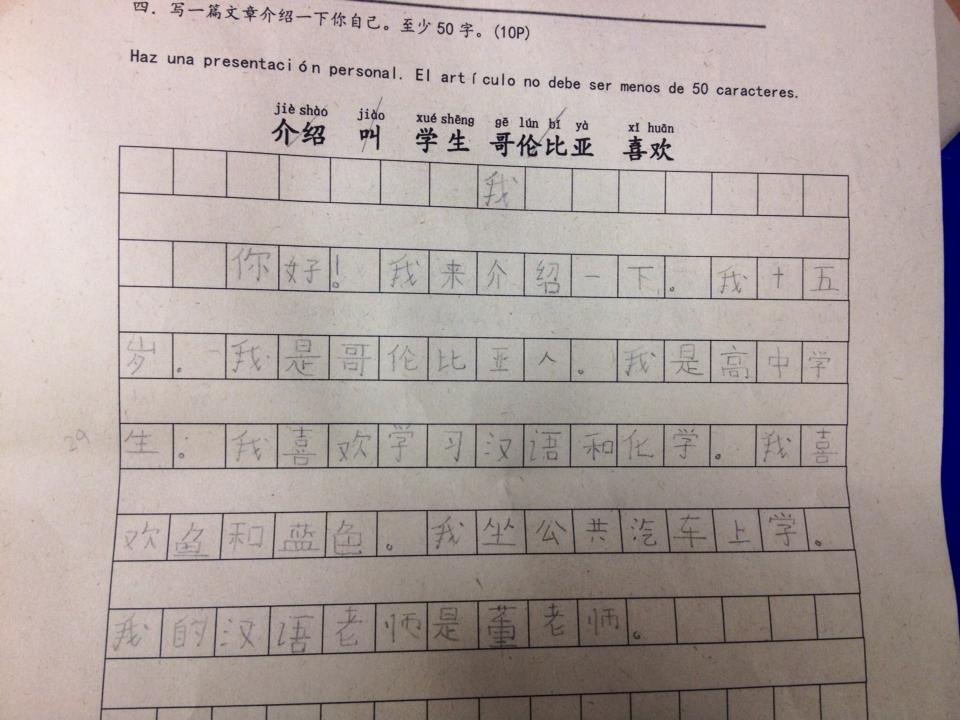 四. 写一篇文章介绍一下你自己。至少 50 字。(10P)
Haz una presentación personal. El artículo no debe ser menos de 50 caracteres.
jiè shào jiào xué shēng gē lún bǐ yà xǐ huān
介绍 叫 学生 哥伦比亚 喜欢
我
你好! 我来介绍一下。我十五
岁。我是哥伦比亚人。我是高中学
29 生。我喜欢学习汉语和化学。我喜
欢鱼和蓝色。我坐公共汽车上学。
我的汉语老师是董老师。